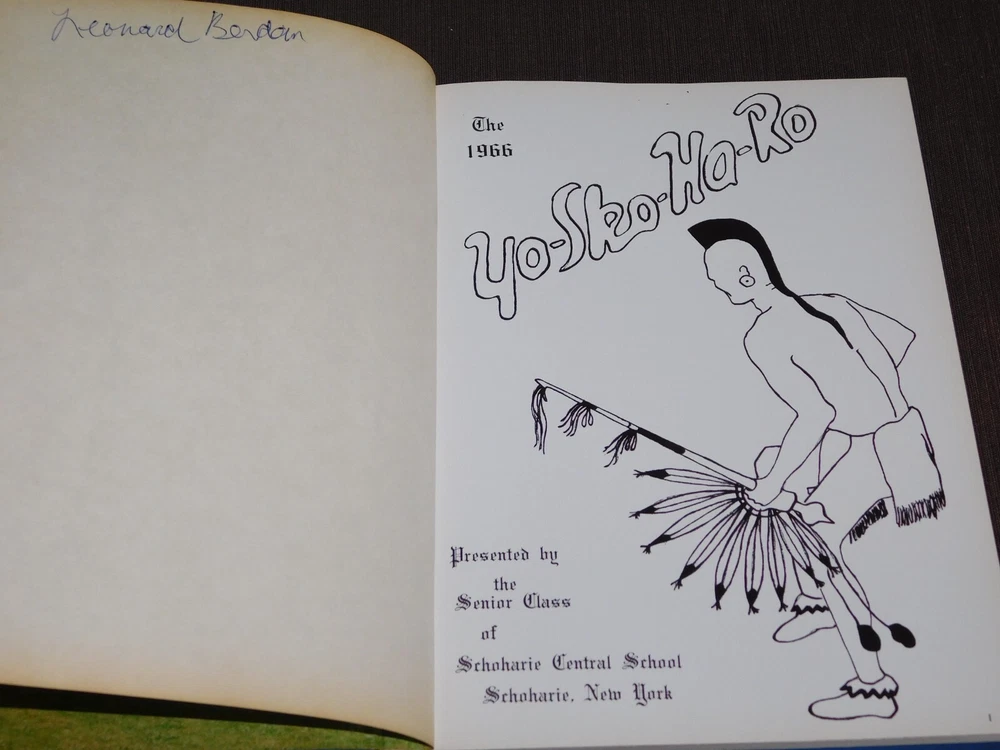 Leonard Berdan
The
1966
Yo-Sko-Ha-Ro
Presented by
the
Senior Class
of
Schoharie Central School
Schoharie, New York
1